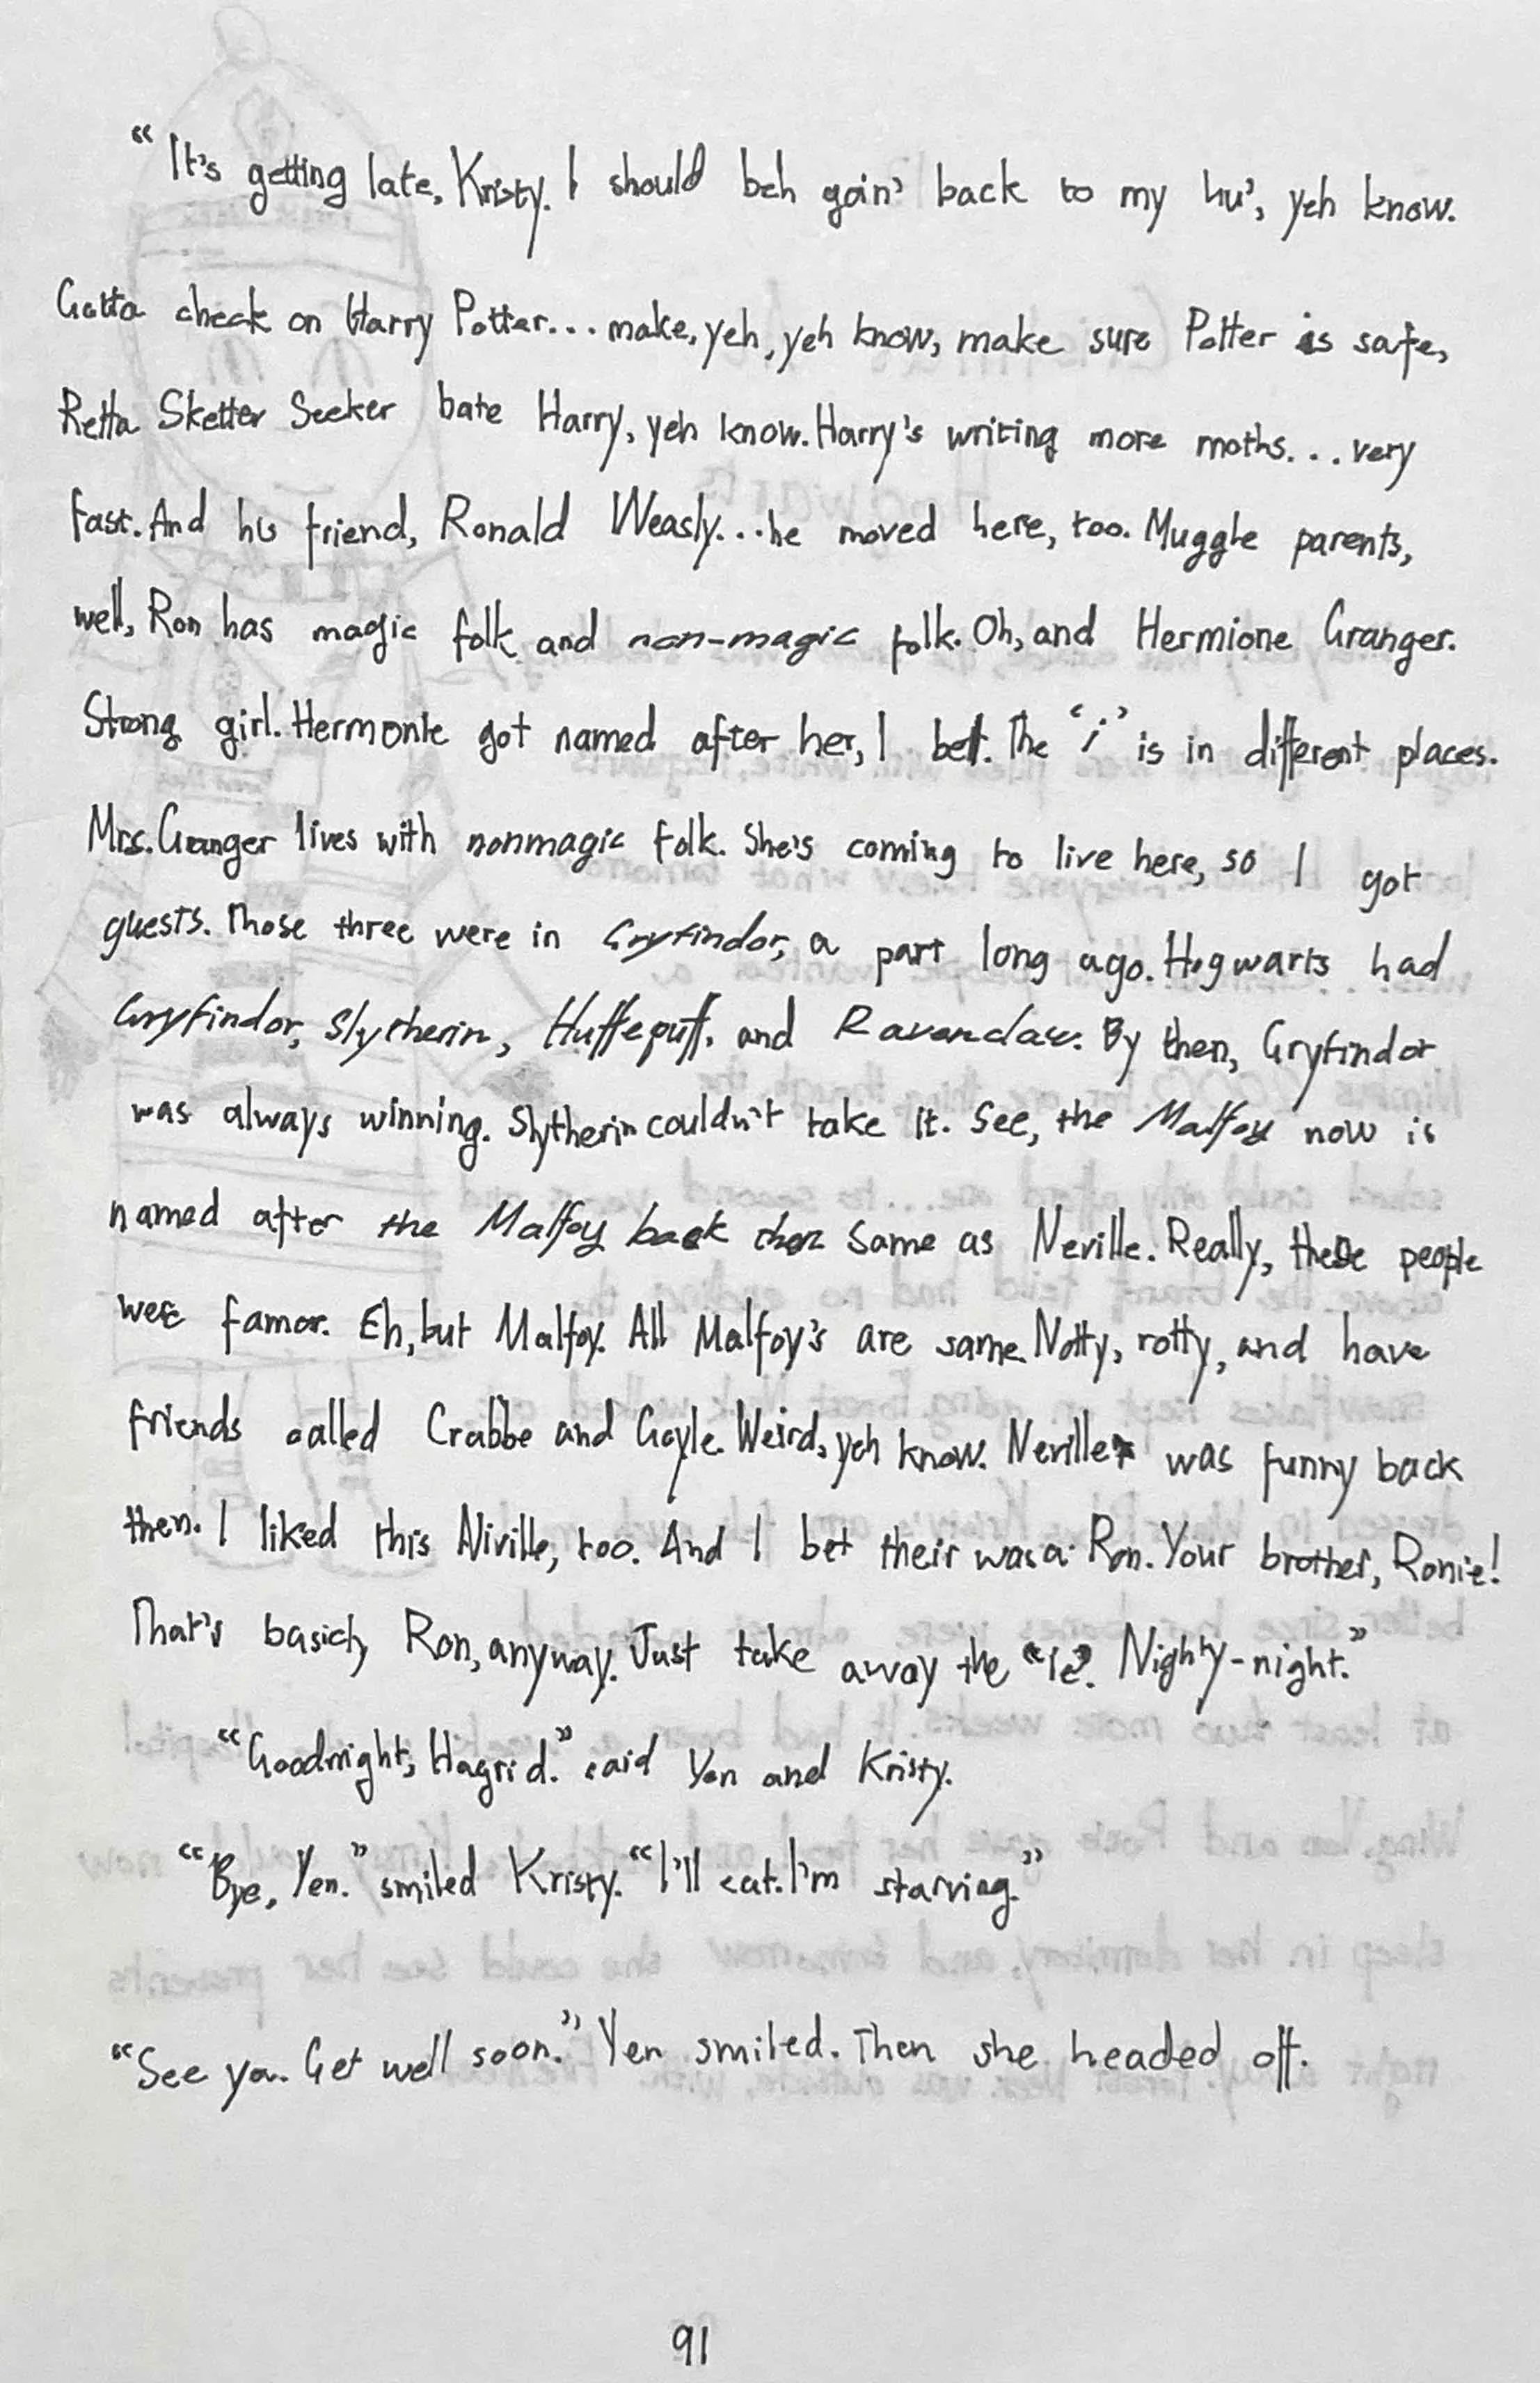 "It's getting late, Kristy. I should beh goin' back to my hu', yeh know.
Gotta check on Harry Potter... make, yeh, yeh know, make sure Potter is safe,
Retta Sketter Seeker bate Harry, yeh know. Harry's writing more moths... very
fast. And his friend, Ronald Weasly... he moved here, too. Muggle parents,
well, Ron has magic folk and non-magic folk. Oh, and Hermione Granger.
Strong girl. Hermonie got named after her, I bet. The 'i' is in different places.
Mrs. Granger lives with nonmagic folk. She's coming to live here, so I got
guests. Those three were in Gryfindor, a part long ago. Hogwarts had
Gryfindor, Slytherin, Huffepuff, and Ravenclaw. By then, Gryfindor
was always winning. Slytherin couldn't take it. See, the Malfoy now is
named after the Malfoy back then same as Neville. Really, these people
were famor. Eh, but Malfoy. All Malfoy's are same. Notty, rotty, and have
friends called Crabbe and Goyle. Weird, yeh know. Neville was funny back
then. I liked this Niville, too. And I bet their was a Ron. Your brother, Ronie!
That's basicly Ron, anyway. Just take away the "ie". Nighty-night."
"Goodnight, Hagrid." said Yen and Kristy.
"Bye, Yen." smiled Kristy. "I'll eat. I'm starving."
"See ya. Get well soon." Yen smiled. Then she headed off.
91